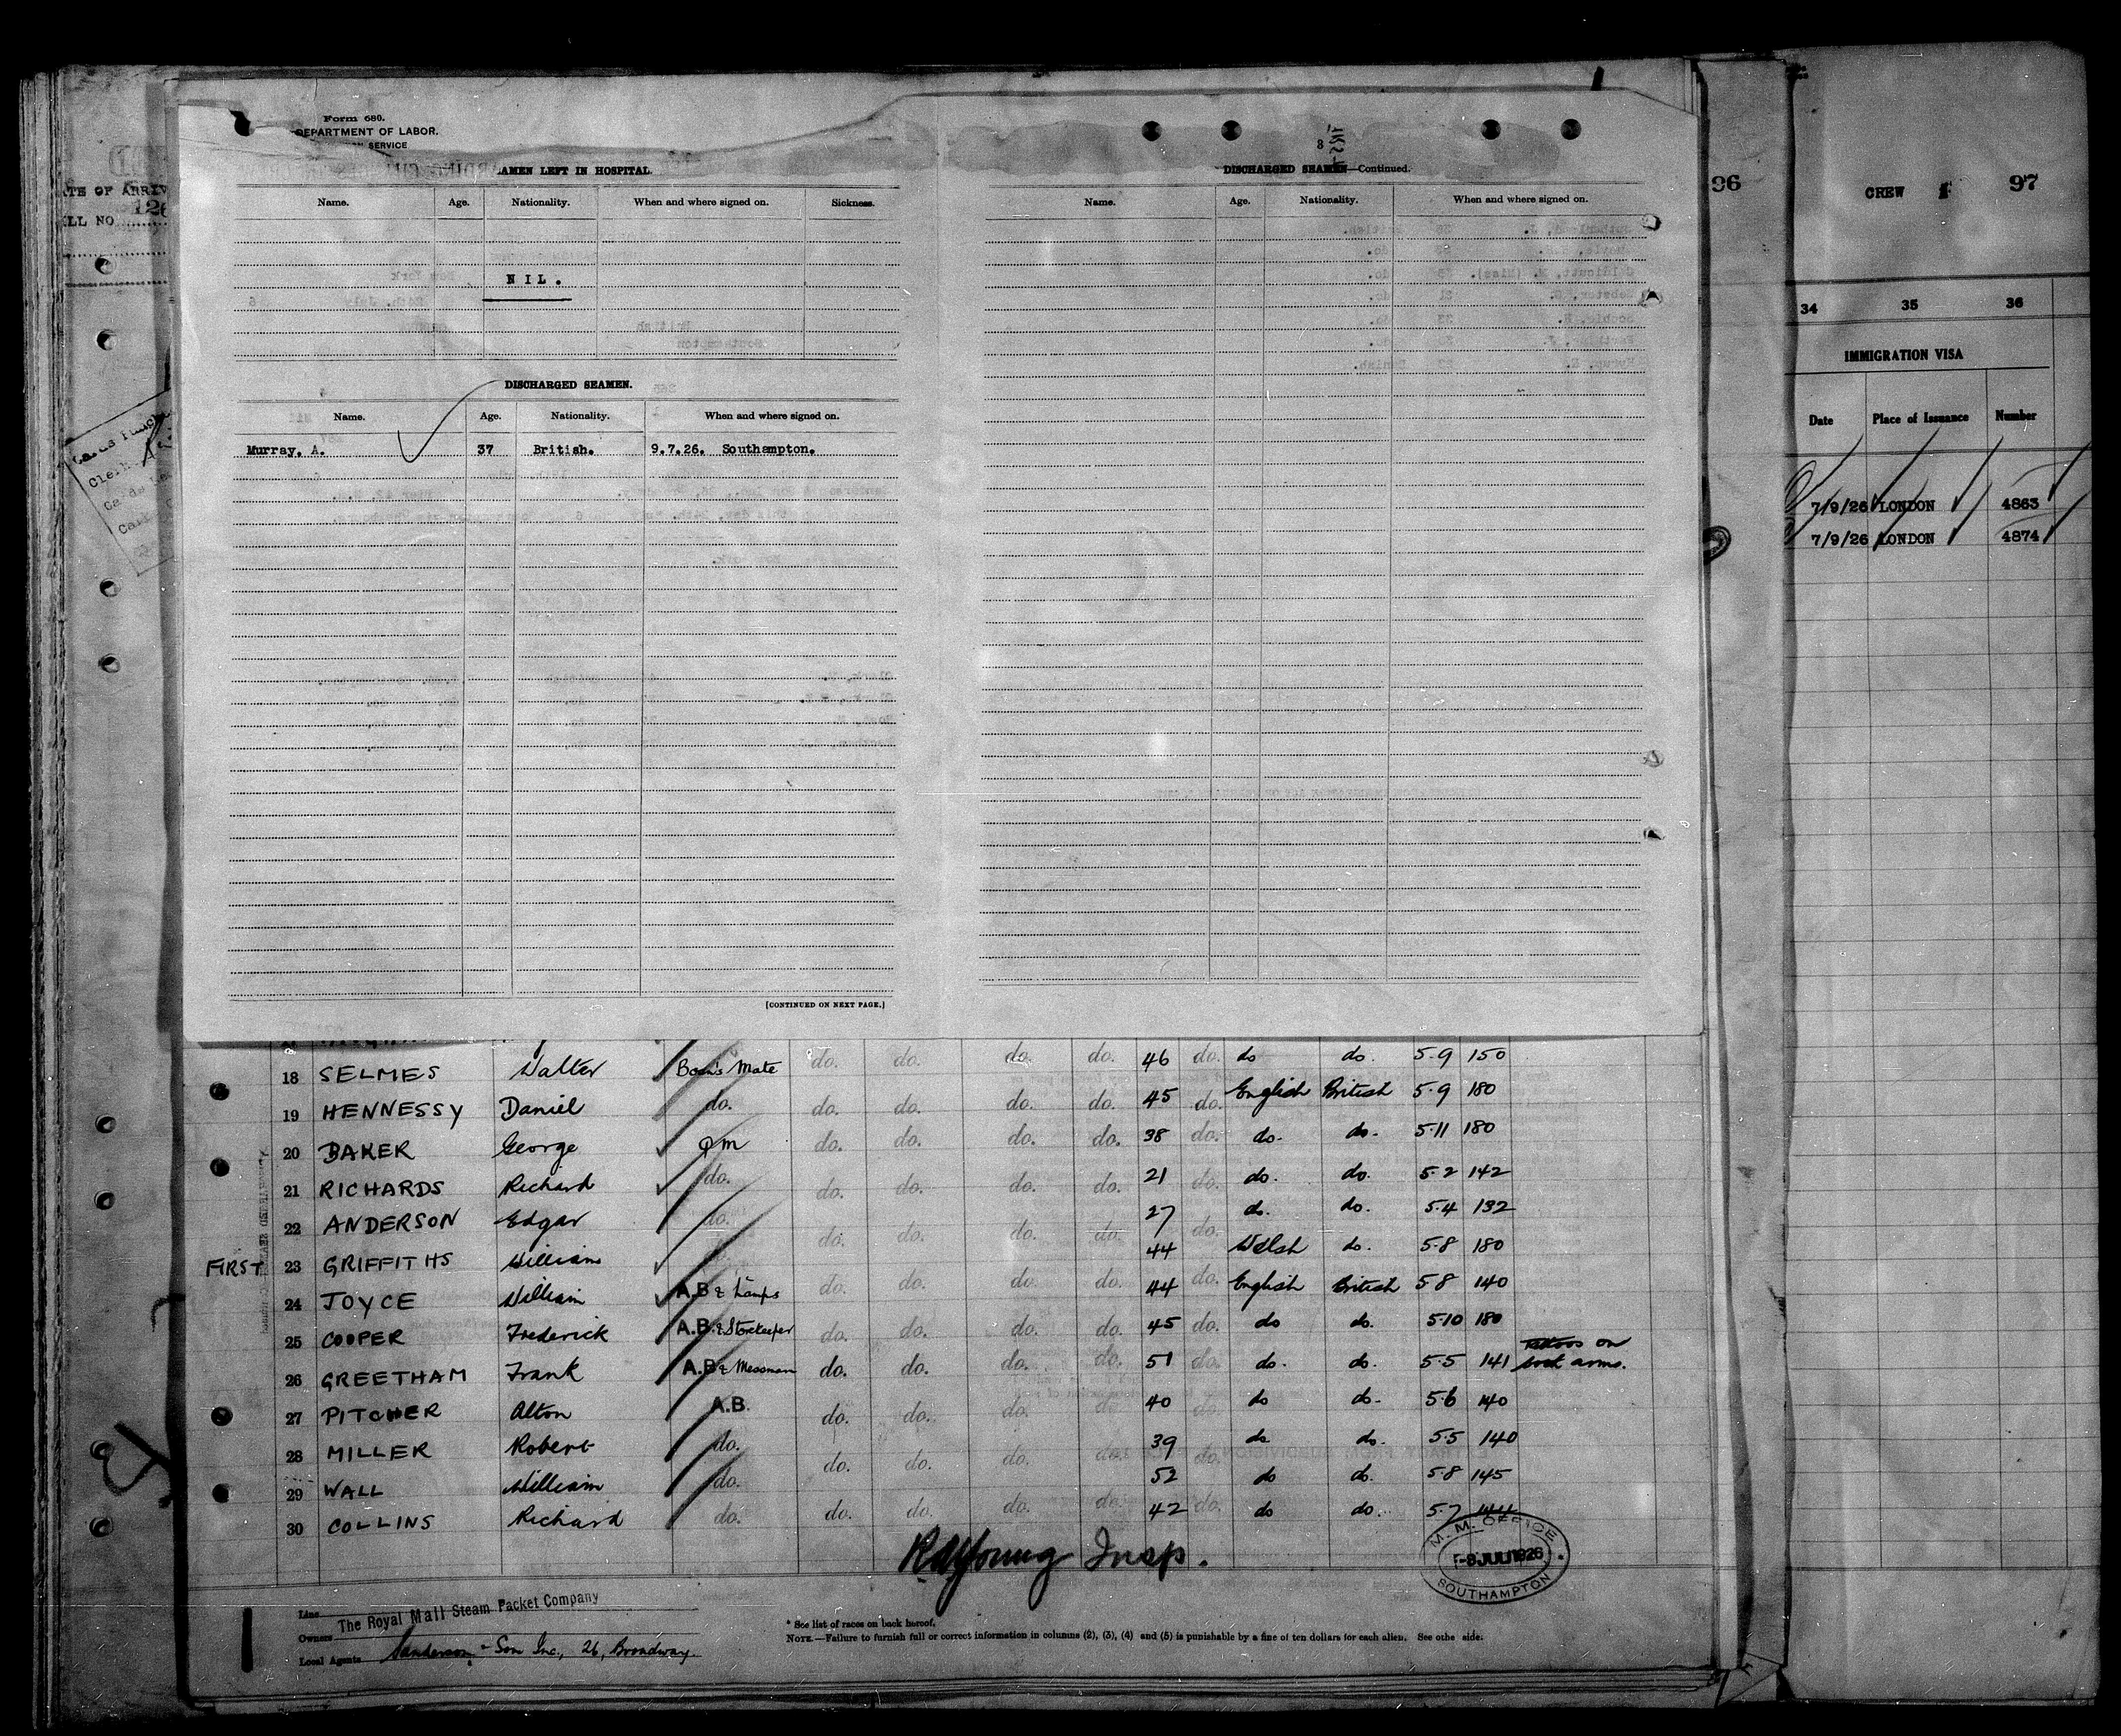 Form 680.
DEPARTMENT OF LABOR.
SERVICE
AMEN LEFT IN HOSPITAL.
Name. Age. Nationality. When and where signed on. Sickness.
NIL.
DISCHARGED SEAMEN.
Name. Age. Nationality. When and where signed on.
Murray, A. 37 British. 9.7.26. Southampton.
[CONTINUED ON NEXT PAGE.]
8
DISCHARGED SEAMEN—Continued.
Name. Age. Nationality. When and where signed on.
96
CREW 97
34 35 36
IMMIGRATION VISA
Date Place of Issuance Number
7/9/26 LONDON 4863
7/9/26 LONDON 4874
18 SELMES Walter Bosn's Mate do. do. do. do. 46 do. do do. 5.9 150
19 HENNESSY Daniel do. do. do. do. do. 45 do. English British 5.9 180
20 BAKER George QM do. do. do. do. 38 do. do. do. 5.11 180
21 RICHARDS Richard do. do. do. do. do. 21 do. do. do. 5.2 142
22 ANDERSON Edgar do. do. do. do. do. 27 do. do. do. 5.4 132
FIRST 23 GRIFFITHS William 44 Welsh do. 5.8 180
24 JOYCE William A.B & Lamps do. do. do. do. 44 do. English British 5.8 140
25 COOPER Frederick A.B. & Storekeeper do. do. do. do. 45 do. do do. 5.10 180
26 GREETHAM Frank A.B & Messman do. do. do. do. 51 do. do. do. 5.5 141 Tattoos on both arms.
27 PITCHER Alton A.B. do. do. do. do. 40 do. do do. 5.6 140
28 MILLER Robert do. do. do. do. do. 39 do. do do. 5.5 140
29 WALL William do. 52 do do. 5.8 145
30 COLLINS Richard do. do. do. do. do. 42 do. do do. 5.7 144
Young Insp.
M. M. OFFICE
8 JUL 1926
SOUTHAMPTON
Line
Owners The Royal Mail Steam Packet Company
Local Agents Sanderson & Son Inc., 26, Broadway.
* See list of races on back hereof.
NOTE.—Failure to furnish full or correct information in columns (2), (3), (4) and (5) is punishable by a fine of ten dollars for each alien. See othe side.